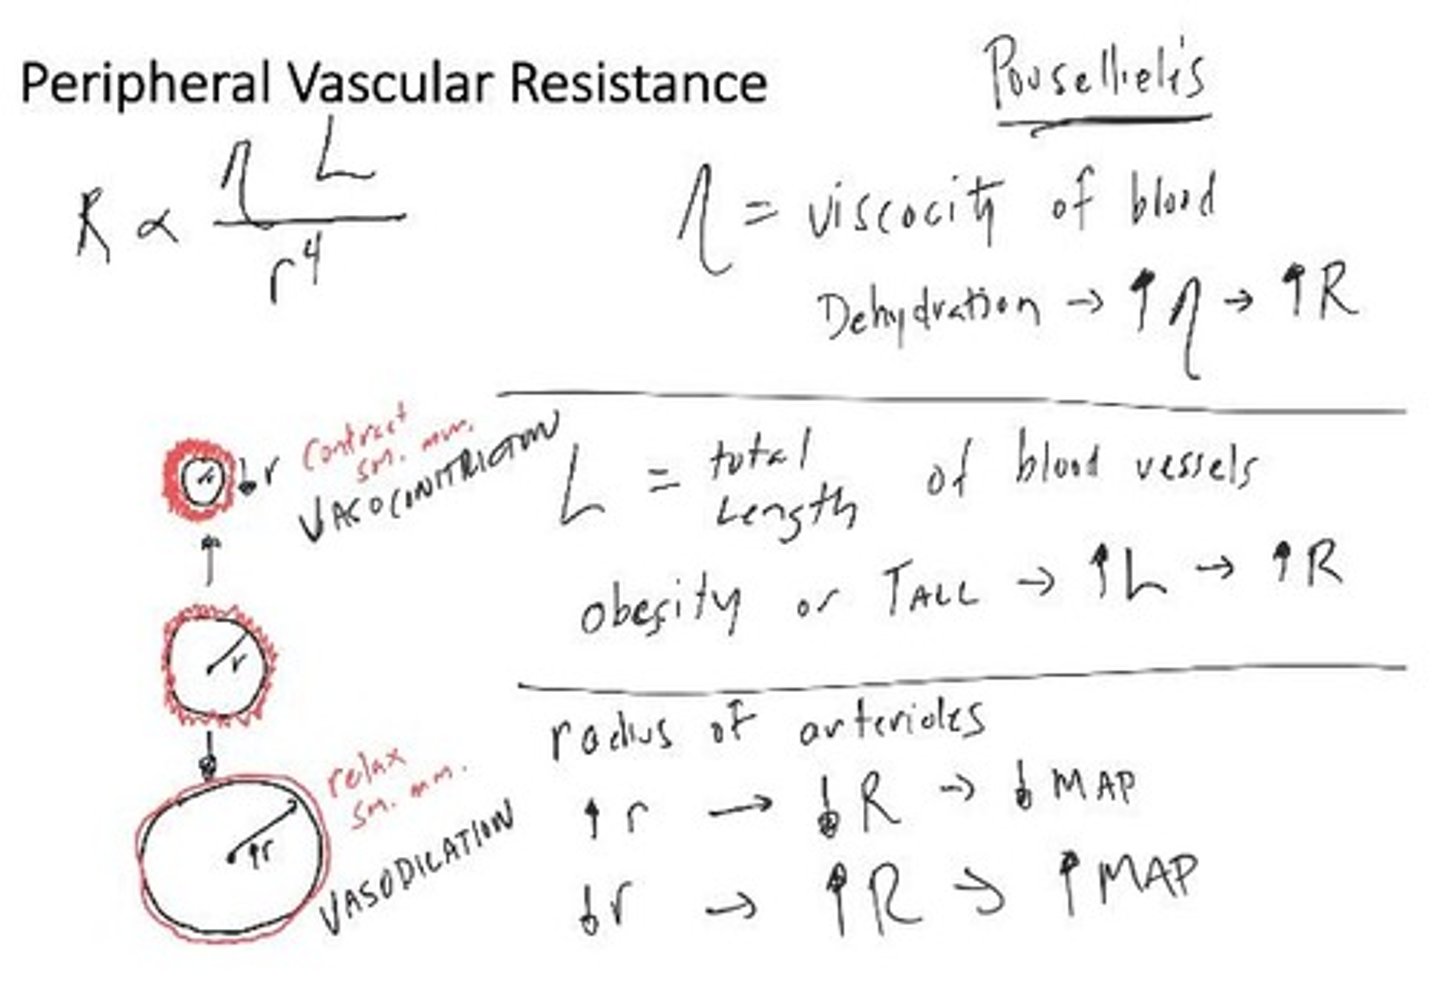 Peripheral Vascular Resistance
Pousellieli's
R ∝ η L / r⁴
η = viscocity of blood
Dehydration → ↑η → ↑R
↓r
contract
sm. mm.
VASOCONTRICTION
L = total Length of blood vessels
obesity or TALL → ↑L → ↑R
r
radius of arterioles
↑r → ↓R → ↓MAP
↓r → ↑R → ↑MAP
relax
sm. mm.
↑r
VASODILATION